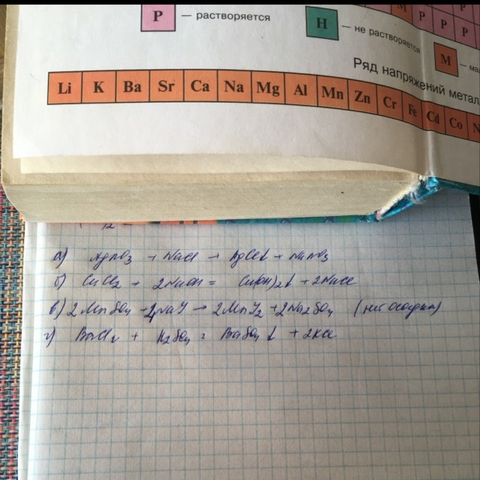 М Р Р
Р Р Р
Р — растворяется
Н — не растворяется
М — ма
Ряд напряжений метал
Li K Ba Sr Ca Na Mg Al Mn Zn Cr Fe Cd Co N
а) AgNO3 + NaCl → AgCl↓ + NaNO3
б) CuCl2 + 2NaOH = Cu(OH)2↓ + 2NaCl
в) 2MnSO4 + 4NaI → 2MnI2 + 2Na2SO4 (нет осадка)
г) BaCl2 + K2SO4 = BaSO4↓ + 2KCl